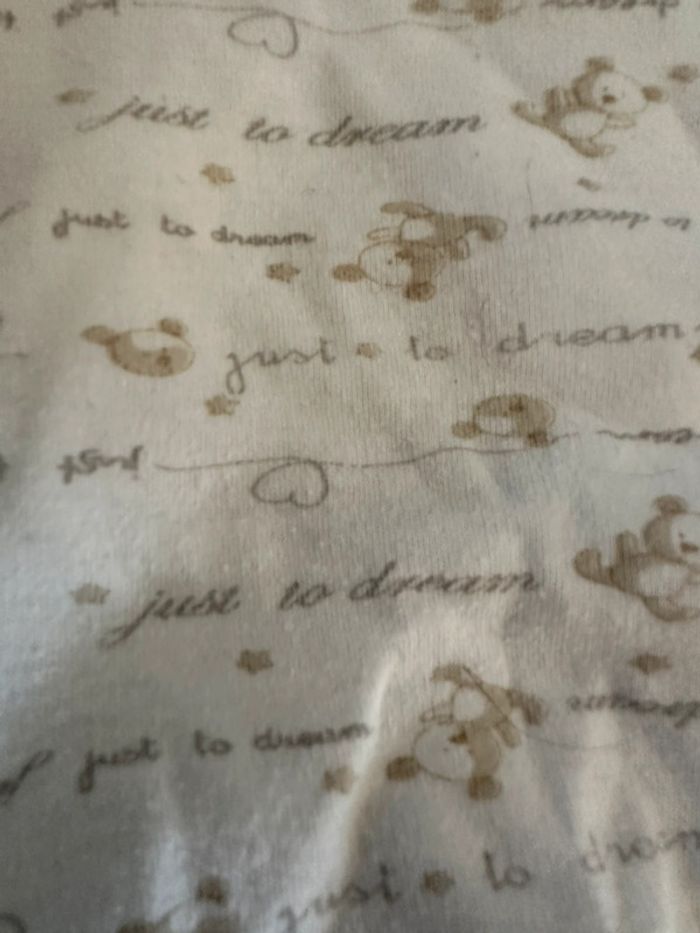 just
just to dream
just to dream to dream
just to dream
just
just to dream
just to dream dream
just to dream